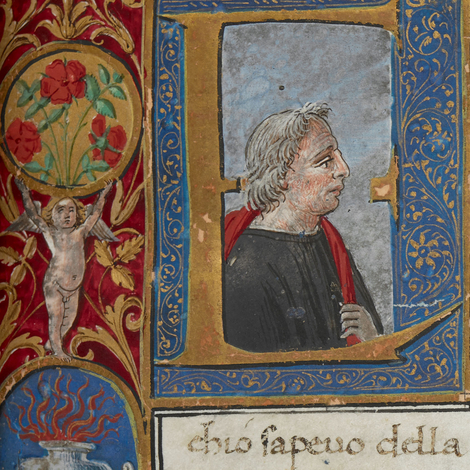 E
chió ſapeuo della